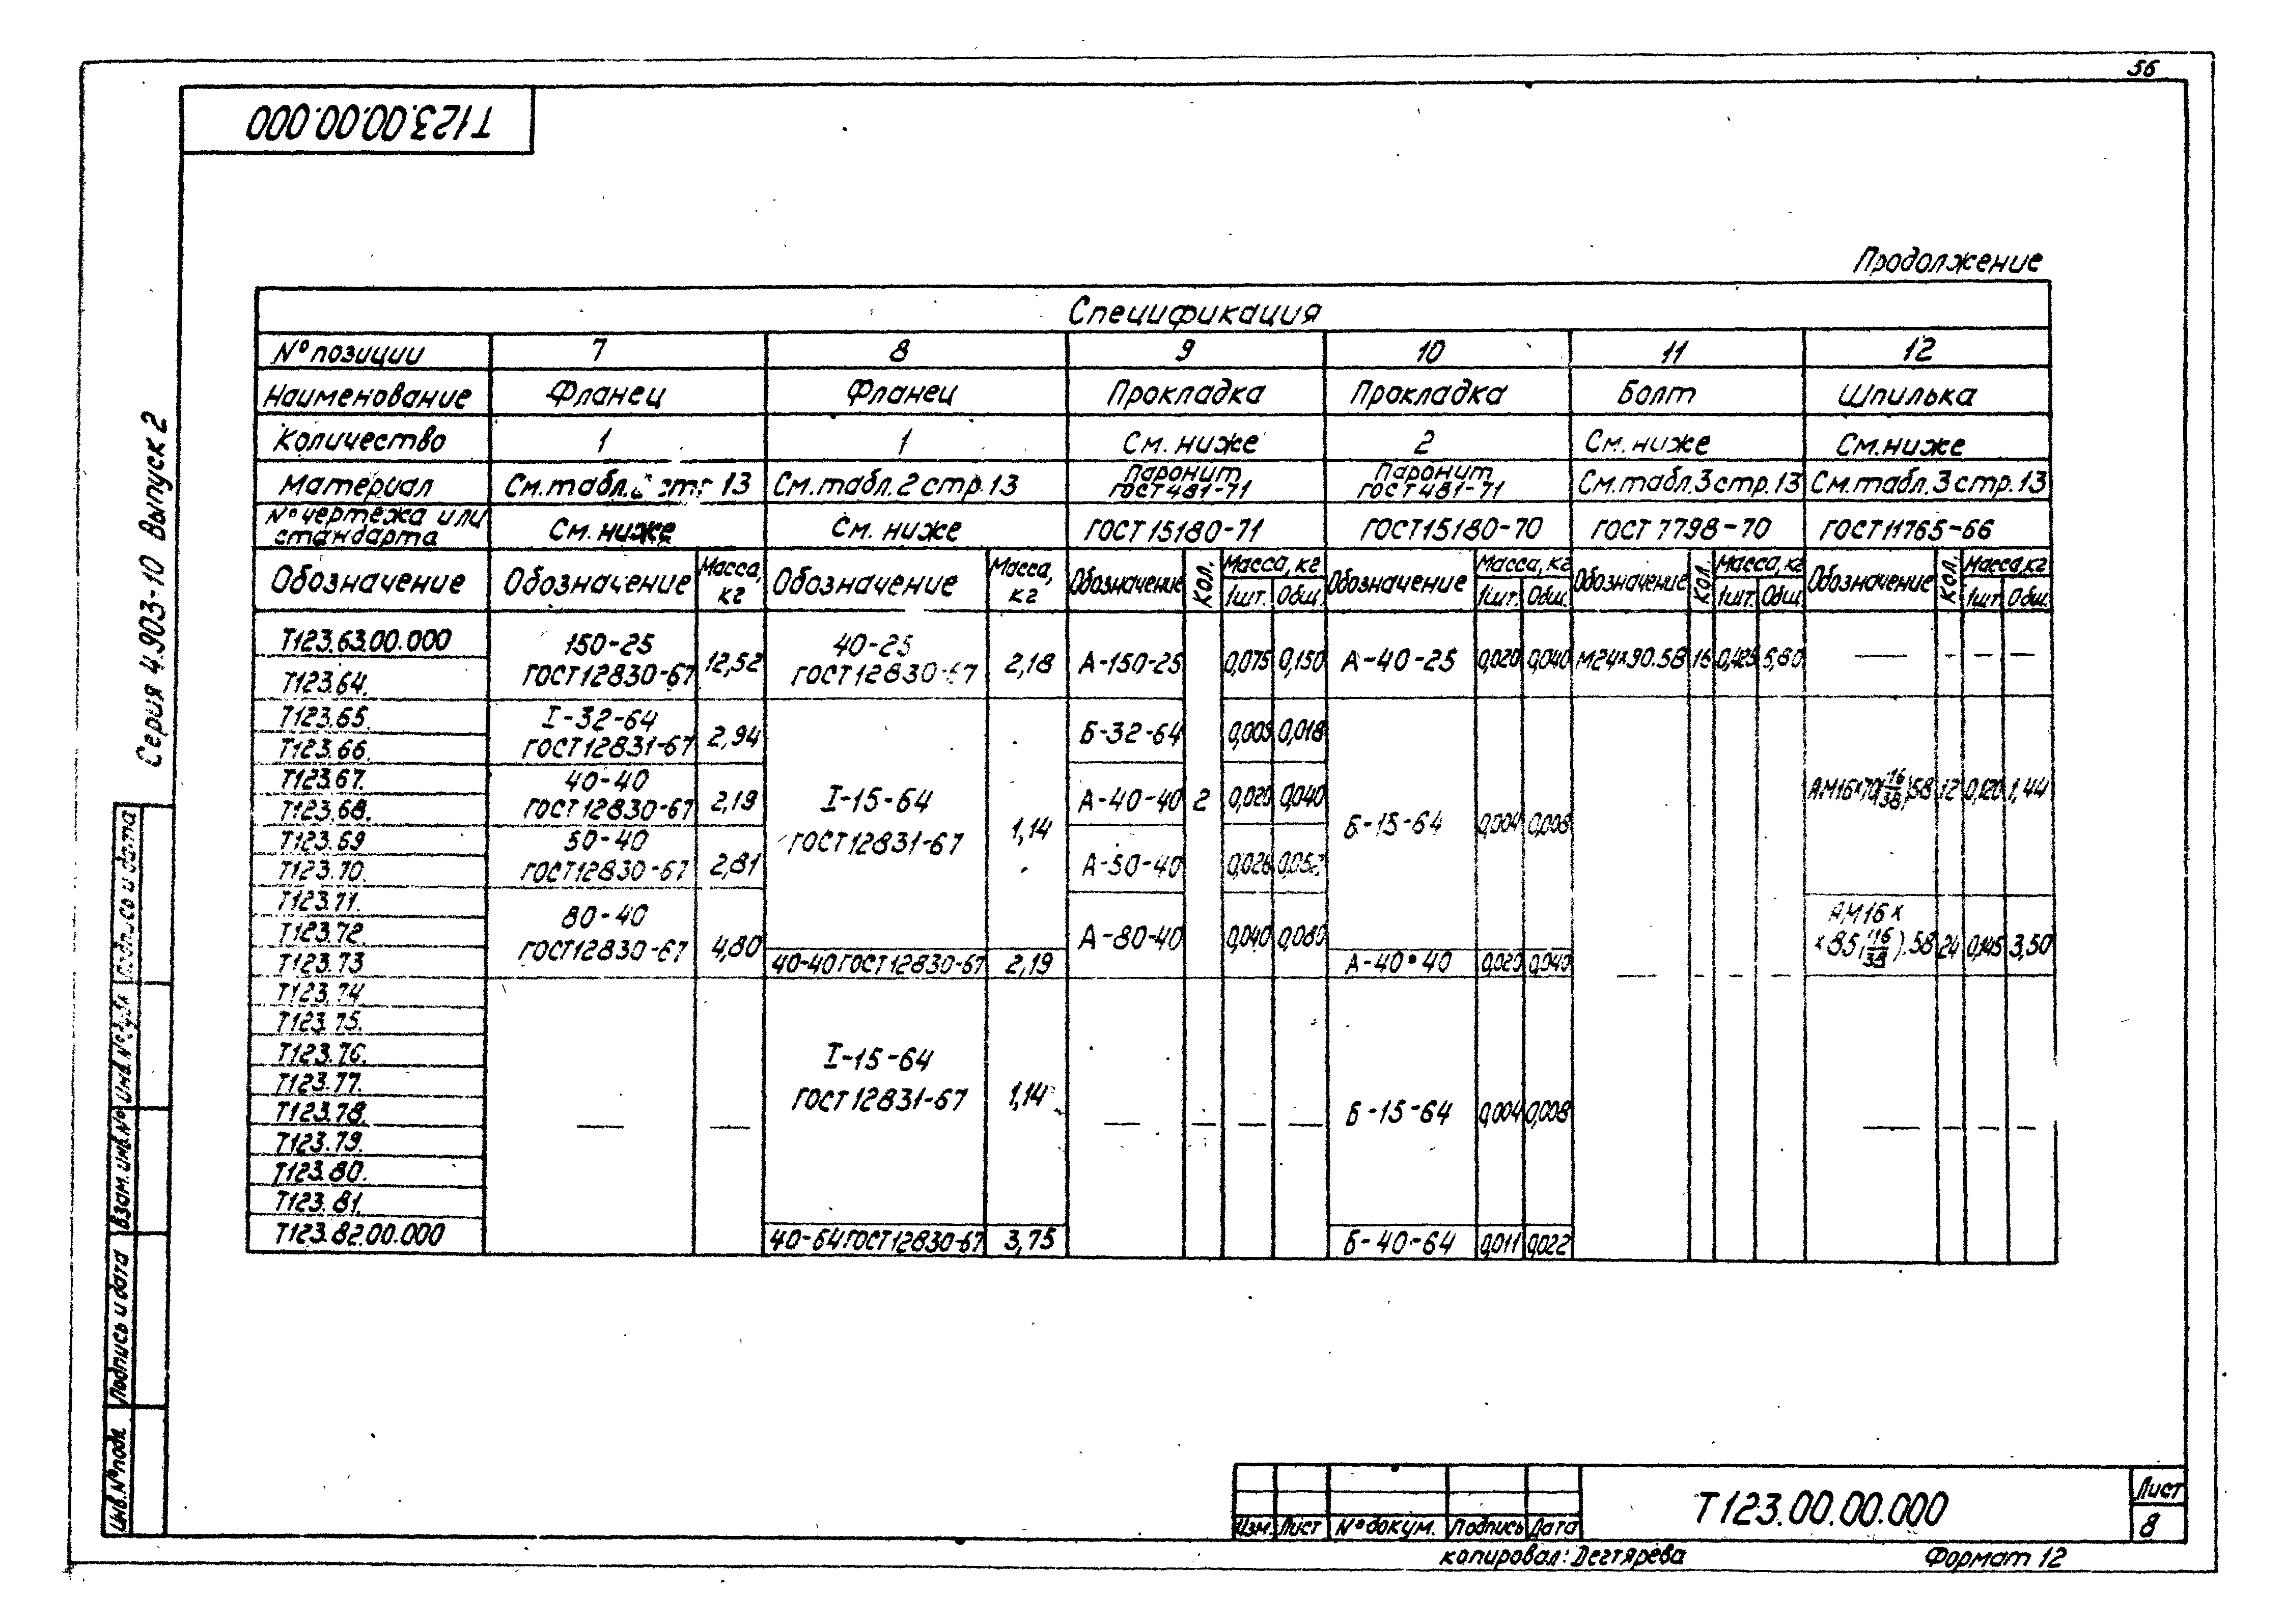 56
Т123.00.00.000
Серия 4.903-10 Выпуск 2
Продолжение
Спецификация
№ позиции 7 8 9 10 11 12
Наименование Фланец Фланец Прокладка Прокладка Болт Шпилька
Количество 1 1 См. ниже 2 См. ниже См. ниже
Материал См. табл. 2 стр 13 См. табл. 2 стр. 13 Паронит ГОСТ 481-71 Паронит ГОСТ 481-71 См. табл. 3 стр. 13 См. табл. 3 стр. 13
№ чертежа или стандарта См. ниже См. ниже ГОСТ 15180-71 ГОСТ 15180-70 ГОСТ 7798-70 ГОСТ 11765-66
Обозначение Обозначение Масса, кг Обозначение Масса, кг Обозначение Кол. Масса, кг 1шт. Общ. Обозначение Масса, кг 1шт. Общ. Обозначение Кол. Масса, кг 1шт. Общ. Обозначение Кол. Масса, кг 1шт Общ.
Т123.63.00.000 150-25 ГОСТ 12830-67 12,52 40-25 ГОСТ 12830-67 2,18 А-150-25 0,075 0,150 А-40-25 0,020 0,040 М24×90.58 16 0,425 6,80 — — — —
Т123.64.
Т123.65. I-32-64 ГОСТ 12831-67 2,94 Б-32-64 0,009 0,018
Т123.66.
Т123.67. 40-40 ГОСТ 12830-67 2,19 I-15-64 ГОСТ 12831-67 1,14 А-40-40 2 0,020 0,040 Б-15-64 0,004 0,008 АМ16×70(16/38).58 12 0,120 1,44
Т123.68.
Т123.69 50-40 ГОСТ 12830-67 2,81 А-50-40 0,026 0,052
Т123.70.
Т123.71. 80-40 ГОСТ 12830-67 4,80 А-80-40 0,040 0,080 АМ16××85(16/38).58 24 0,145 3,50
Т123.72.
Т123.73 40-40 ГОСТ 12830-67 2,19 А-40-40 0,020 0,040 — — — —
Т123.74
Т123.75.
Т123.76. I-15-64 ГОСТ 12831-67 1,14
Т123.77.
Т123.78. — — — — — — Б-15-64 0,004 0,008 — — — —
Т123.79.
Т123.80.
Т123.81.
Т123.82.00.000 40-64 ГОСТ 12830-67 3,75 Б-40-64 0,011 0,022
Инв.№ подл. Подпись и дата Взам. инв.№ Инв.№ дубл Подпись и дата
Изм. Лист № докум. Подпись Дата
Т123.00.00.000
Лист
8
Копировал: Дегтярева Формат 12